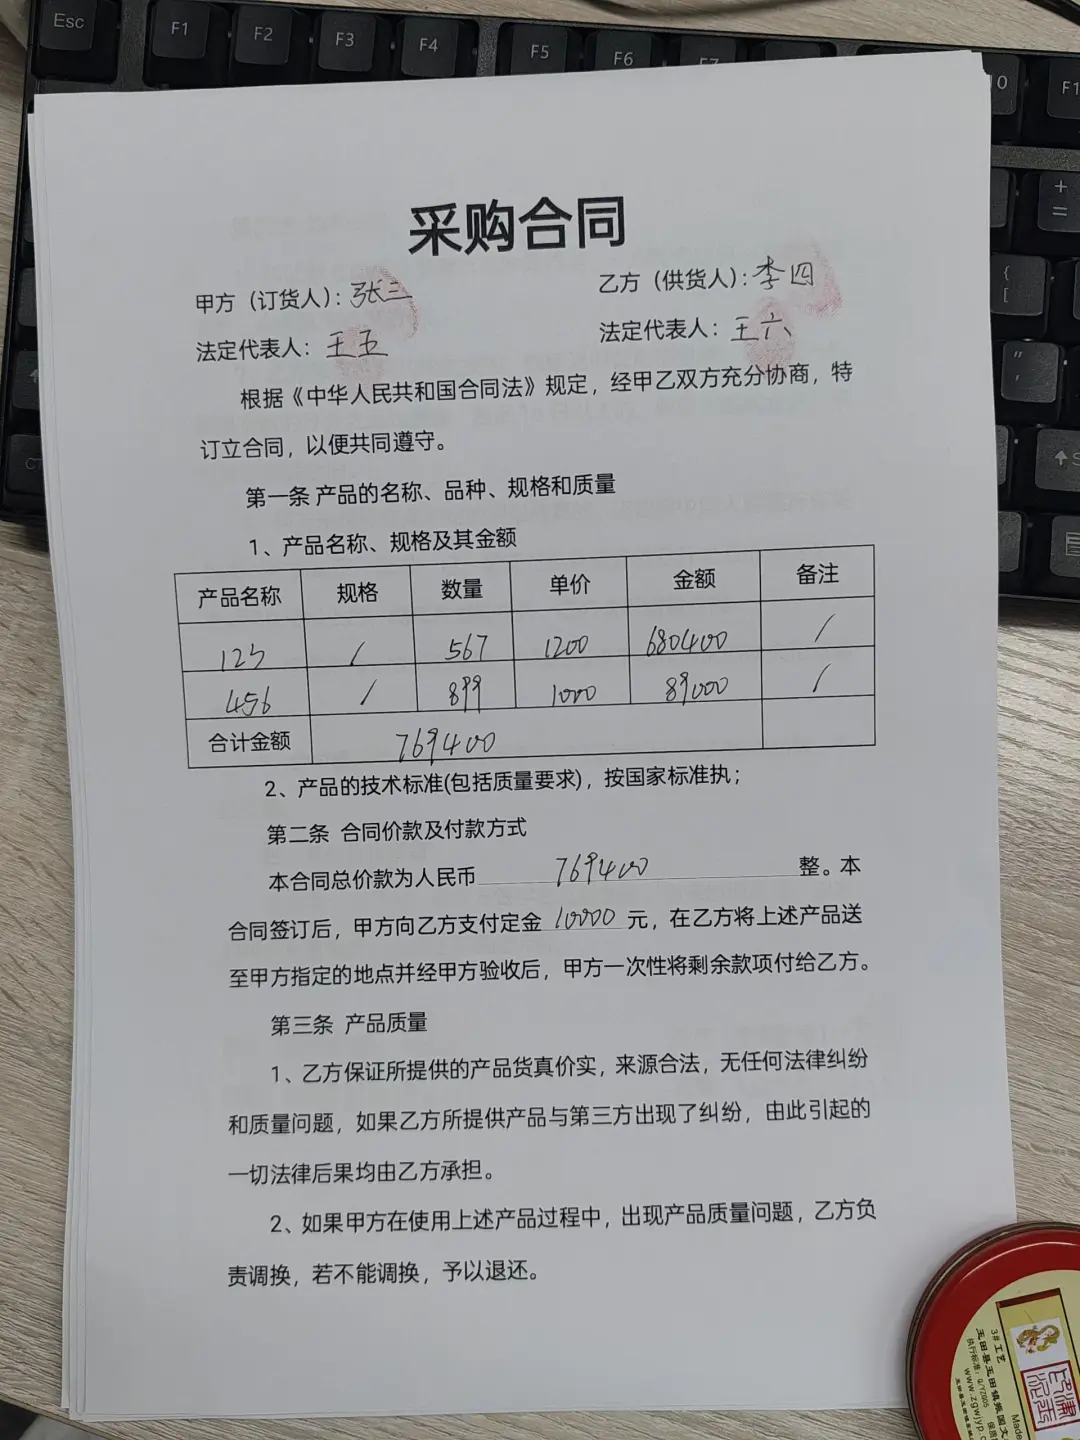 Esc F1 F2 F3 F4 F5 F6 F7
采购合同
甲方（订货人）：张三
乙方（供货人）：李四
法定代表人：王五
法定代表人：王六
根据《中华人民共和国合同法》规定，经甲乙双方充分协商，特
订立合同，以便共同遵守。
第一条 产品的名称、品种、规格和质量
1、产品名称、规格及其金额
产品名称 规格 数量 单价 金额 备注
123 / 567 1200 680400 /
456 / 899 1000 89000 /
合计金额 769400
2、产品的技术标准(包括质量要求)，按国家标准执；
第二条 合同价款及付款方式
本合同总价款为人民币 769400 整。本
合同签订后，甲方向乙方支付定金 10000 元，在乙方将上述产品送
至甲方指定的地点并经甲方验收后，甲方一次性将剩余款项付给乙方。
第三条 产品质量
1、乙方保证所提供的产品货真价实，来源合法，无任何法律纠纷
和质量问题，如果乙方所提供产品与第三方出现了纠纷，由此引起的
一切法律后果均由乙方承担。
2、如果甲方在使用上述产品过程中，出现产品质量问题，乙方负
责调换，若不能调换，予以退还。
3#工艺
www.zgwjyp.c
Made